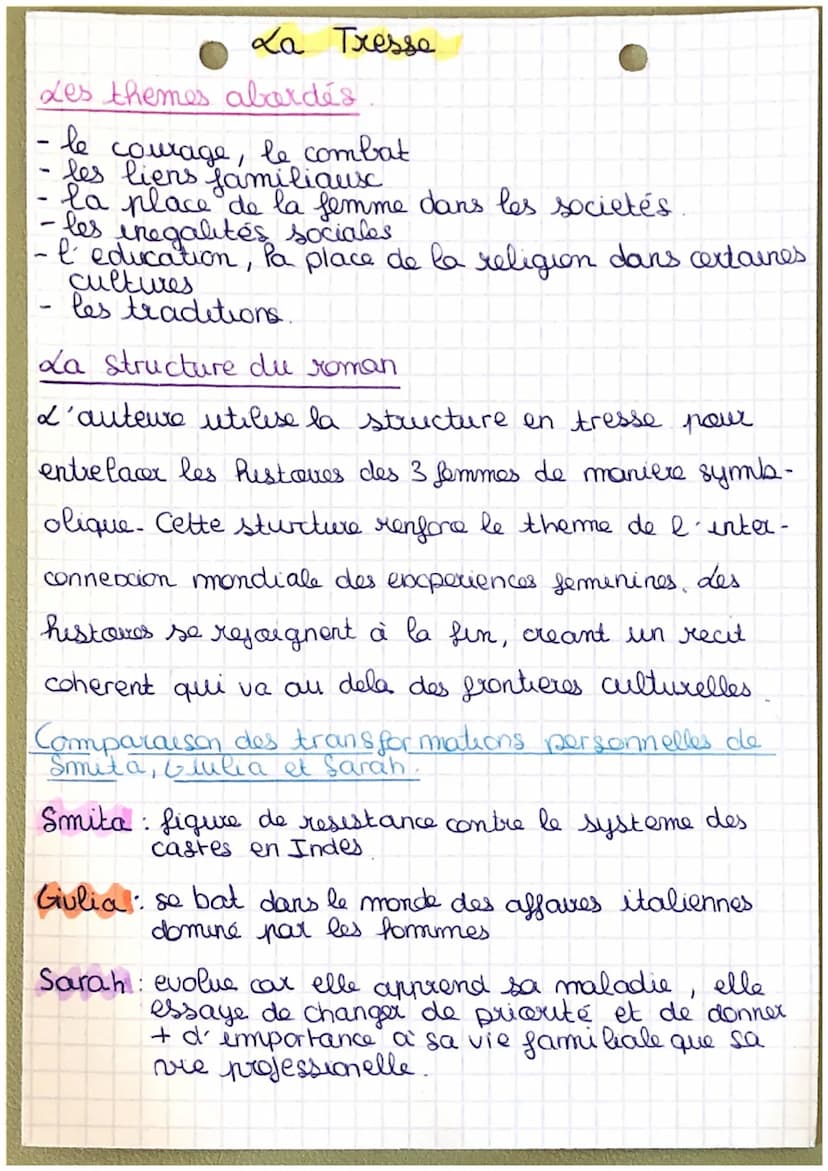 La Tresse
Les themes abordés.
- le courage, le combat
- les liens familiaux
- la place de la femme dans les societés.
- les inegalités sociales
- l'education, la place de la religion dans certaines
cultures
- les traditions.
La structure du roman
L'auteure utilise la structure en tresse pour
entrelacer les histoires des 3 femmes de maniere symb-
olique. Cette sturcture renforce le theme de l'inter-
connexion mondiale des experiences feminines. Les
histoires se rejoignent à la fin, creant un recit
coherent qui va au dela des frontieres culturelles.
Comparaison des transformations personnelles de
Smita, Giulia et Sarah.
Smita : figure de resistance contre le systeme des
castes en Indes.
Giulia : se bat dans le monde des affaires italiennes
dominé par les hommes
Sarah : evolue car elle apprend sa maladie, elle
essaye de changer de priorité et de donner
+ d'importance à sa vie familiale que sa
vie projessionelle.